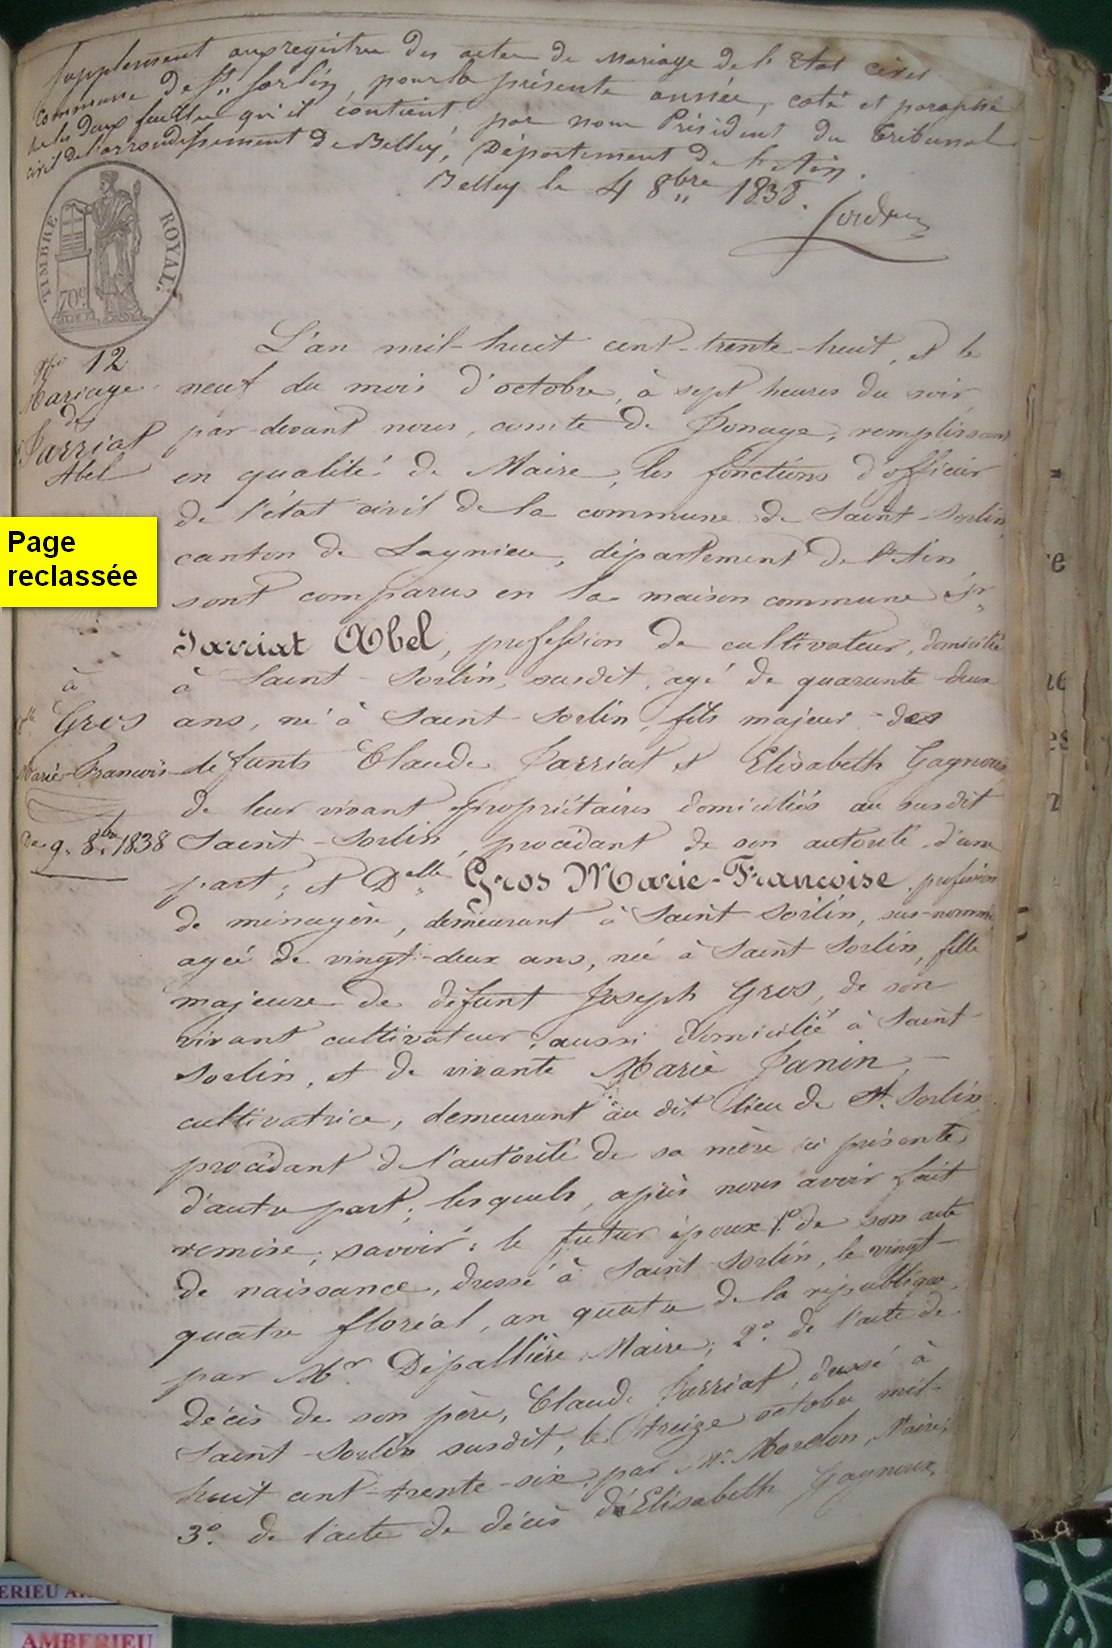 Supplement aux registres des actes de Mariage de l'Etat civil
commune de St. Sorlin, pour la présente année, coté et paraphé
deux feuilles qu'il contient par nous Président du Tribunal
civil de l'arrondissement de Belley, Département de l'Ain.
Belley le 4 8bre 1838.
TIMBRE ROYAL.
70c
L'an mil-huit cent-trente-huit, et le
No 12
Mariage
de
Jarriat
Abel
neuf du mois d'octobre, à sept heures du soir
par-devant nous, comte de Jonage, remplissant
en qualité de Maire, les fonctions d'officier
de l'état civil de la commune de Saint-Sorlin,
Page
reclassée
canton de Lagnieu, département de l'Ain
sont comparus en la maison commune, Sr
Jarriat Abel, profession de cultivateur, domicilié
à Saint-Sorlin, susdit, agé de quarante-deux
à
Gros
Marie-Francoise
De 9. 8bre 1838
ans, né à Saint-Sorlin, fils majeur des
defunts Claude Jarriat et Elisabeth Gagnoux
de leur vivant propriétaires domiciliés au susdit
Saint-Sorlin, procédant de son autorité d'une
part; et Delle Gros Marie-Francoise, profession
de ménagère, demeurant à Saint Sorlin, sus-nommé
agée de vingt-deux ans, née à Saint Sorlin, fille
majeure de défunt Joseph Gros, de son
vivant cultivateur, aussi domicilié à Saint
Sorlin, et de vivante Marie Janin,
cultivatrice, demeurant au dit lieu de St. Sorlin
procédant de l'autorité de sa mère ici présente
d'autre part; lesquels, après nous avoir fait
remise, savoir: le futur époux 1o. de son acte
de naissance, dressé à Saint Sorlin, le vingt-
quatre floréal, an quatre de la république
par Mr. Dépallière Maire; 2o. de l'acte de
décès de son père, Claude Jarriat, dressé à
Saint-Sorlin susdit, le treize octobre mil-
huit cent-trente-six, par Mr. Morelon, Maire;
3o. de l'acte de décès d'Elisabeth Gagnoux,
AMBERIEU